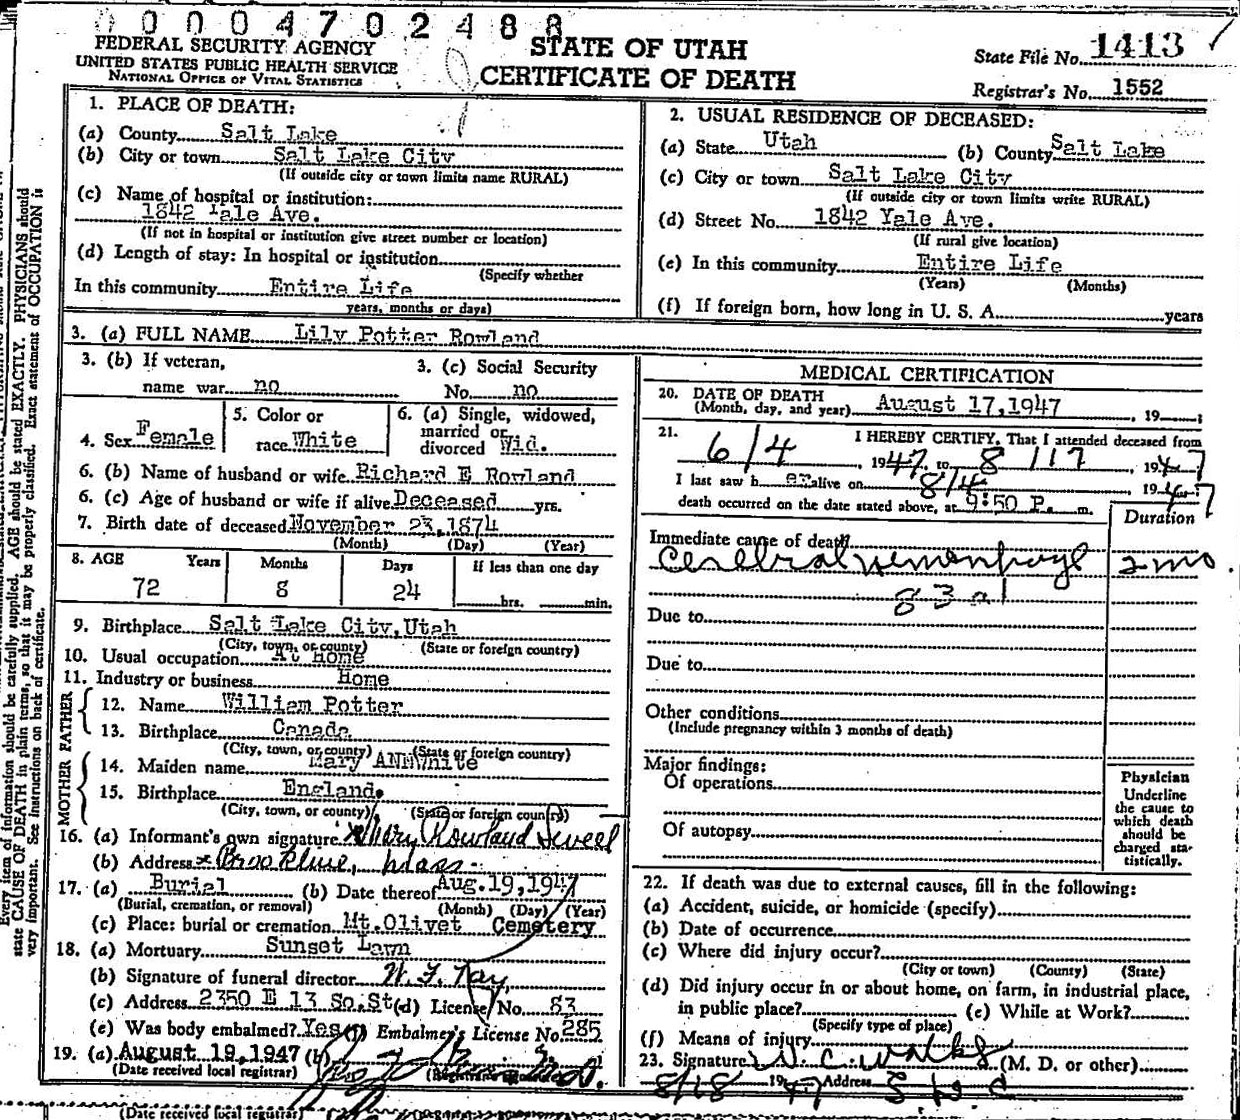 00004702488
FEDERAL SECURITY AGENCY
UNITED STATES PUBLIC HEALTH SERVICE
NATIONAL OFFICE OF VITAL STATISTICS
STATE OF UTAH
CERTIFICATE OF DEATH
State File No. 1413
Registrar's No. 1552
1. PLACE OF DEATH:
(a) County Salt Lake
(b) City or town Salt Lake City
(If outside city or town limits name RURAL)
(c) Name of hospital or institution:
1842 Yale Ave.
(If not in hospital or institution give street number or location)
(d) Length of stay: In hospital or institution
(Specify whether
In this community Entire Life
years, months or days)
2. USUAL RESIDENCE OF DECEASED:
(a) State Utah (b) County Salt Lake
(c) City or town Salt Lake City
(If outside city or town limits write RURAL)
(d) Street No. 1842 Yale Ave.
(If rural give location)
(e) In this community Entire Life
(Years) (Months)
(f) If foreign born, how long in U. S. A. years
3. (a) FULL NAME Lily Potter Rowland
3. (b) If veteran,
name war no
3. (c) Social Security
No. no
4. Sex Female
5. Color or
race White
6. (a) Single, widowed,
married or
divorced Wid.
6. (b) Name of husband or wife Richard E Rowland
6. (c) Age of husband or wife if alive Deceased yrs.
7. Birth date of deceased November 23, 1874
(Month) (Day) (Year)
8. AGE Years Months Days If less than one day
72 8 24 hrs. min.
9. Birthplace Salt Lake City, Utah
(City, town, or county) (State or foreign country)
10. Usual occupation At Home
11. Industry or business Home
FATHER
12. Name William Potter
13. Birthplace Canada
(City, town, or county) (State or foreign country)
MOTHER
14. Maiden name Mary Ann White
15. Birthplace England.
(City, town, or county) (State or foreign country)
16. (a) Informant's own signature x Mary Rowland Sweet
(b) Address x Brookline, Mass.
17. (a) Burial (b) Date thereof Aug. 19, 1947
(Burial, cremation, or removal) (Month) (Day) (Year)
(c) Place: burial or cremation Mt. Olivet Cemetery
18. (a) Mortuary Sunset Lawn
(b) Signature of funeral director W. F. Ray
(c) Address 2350 E 13 So. St (d) License No. 83
(e) Was body embalmed? Yes (f) Embalmer's License No. 285
19. (a) August 19, 1947 (b)
(Date received local registrar)
MEDICAL CERTIFICATION
20. DATE OF DEATH
(Month, day, and year) August 17, 1947, 19 ;
21. I HEREBY CERTIFY, That I attended deceased from
6/4, 1947, to 8/17, 1947
I last saw h er alive on 8/4 1947
death occurred on the date stated above, at 9:50 P. m.
Duration
Immediate cause of death
Cerebral hemorrhage 2 mo.
83a
Due to
Due to
Other conditions
(Include pregnancy within 3 months of death)
Major findings:
Of operations
Of autopsy
Physician
Underline
the cause to
which death
should be
charged sta-
tistically.
22. If death was due to external causes, fill in the following:
(a) Accident, suicide, or homicide (specify)
(b) Date of occurrence
(c) Where did injury occur?
(City or town) (County) (State)
(d) Did injury occur in or about home, on farm, in industrial place,
in public place? (e) While at Work?
(Specify type of place)
(f) Means of injury
23. Signature W. C. Walker (M. D. or other)
8/18 1947 Address S L C
(Date received local registrar)
Every item of information should be carefully supplied. AGE should be stated EXACTLY. PHYSICIANS should
state CAUSE OF DEATH in plain terms, so that it may be properly classified. Exact statement of OCCUPATION is
very important. See instructions on back of certificate.